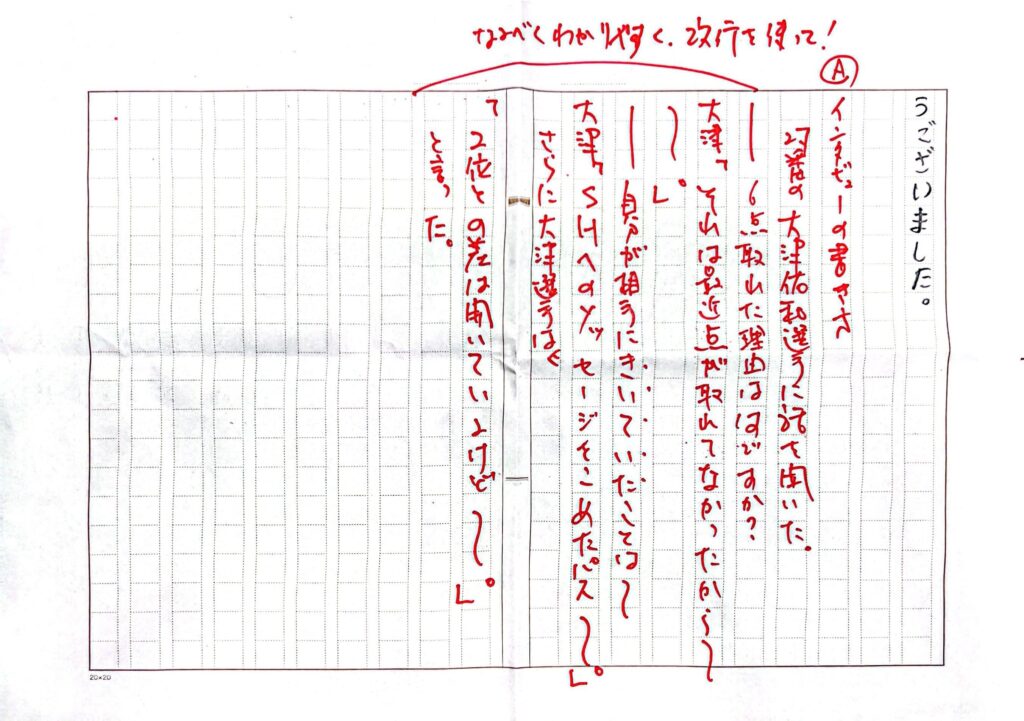 なるべくわかりやすく、改行を使って!
うございました。
Ⓐ
インタビューの書き方
27番の大津佑和選手に話を聞いた。
― 6点取れた理由はなんですか?
大津「それは最近点が取れてなかったから〜
〜」。
― 自分が相手にきいていたことは〜
大津「SHへのメッセージをこめたパス〜」。
さらに大津選手は、
「2位との差は開いているけど〜」。
と言った。
20×20